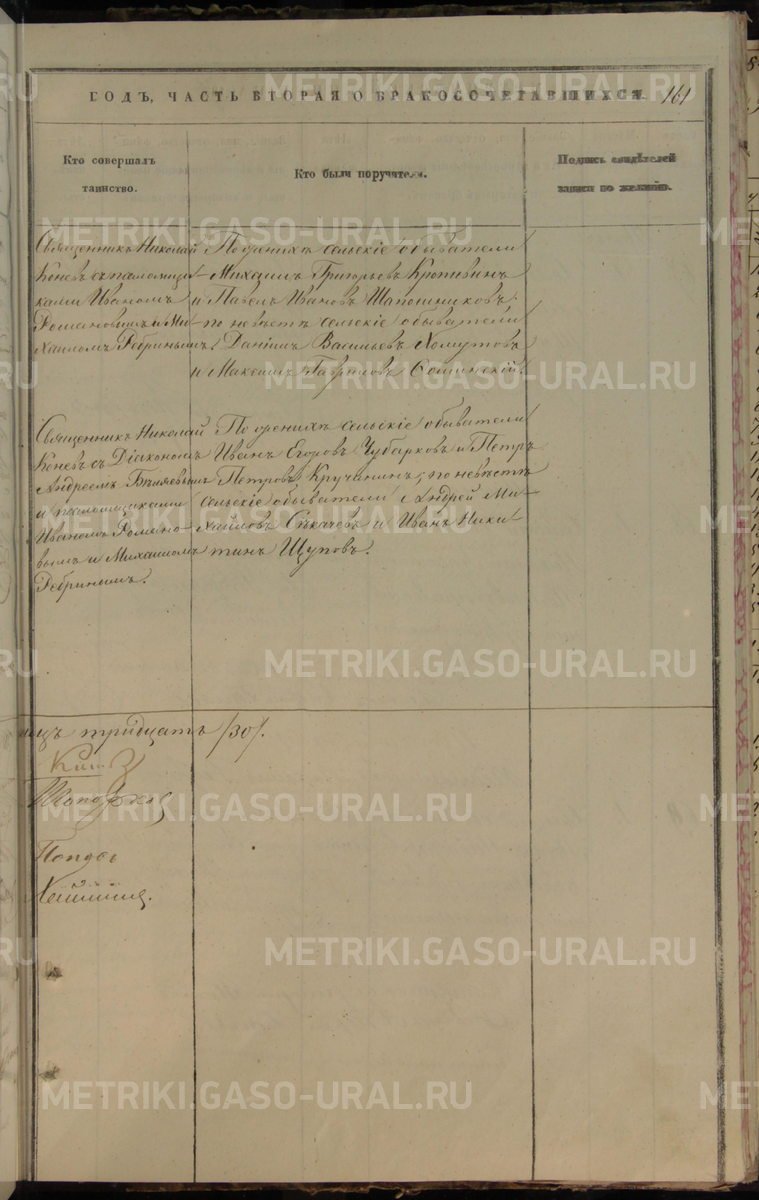 ГОДЪ, ЧАСТЬ ВТОРАЯ О БРАКОСОЧЕТАВШИХСЯ. 161
Кто совершалъ
таинство.
Кто были поручители.
Подпись свидѣтелей
записи по желанію.
Священникъ Николай
Коневъ съ паломщи-
ками Иваномъ
Романовымъ и Ми-
хаиломъ Ребринымъ.
По женихѣ сельскіе обыватели
Михаилъ Григорьевъ Кропивинъ
и Павелъ Ивановъ Шапошниковъ;
по невѣстѣ сельскіе обыватели
Даніилъ Васильевъ Хомутовъ
и Максимъ Гавриловъ
Священникъ Николай
Коневъ съ Діакономъ
Андреемъ Бѣляевымъ
и паломщиками
Иваномъ Романо-
вымъ и Михаиломъ
Ребринымъ.
По женихѣ сельскіе обыватели
Иванъ Егоровъ Чубарковъ и Петръ
Петровъ Кручининъ; по невѣстѣ
сельскіе обыватели Андрей Ми-
хайловъ Секачевъ и Иванъ Ники-
тинъ Щуповъ.
тридцать /30/.
METRIKI.GASO-URAL.RU